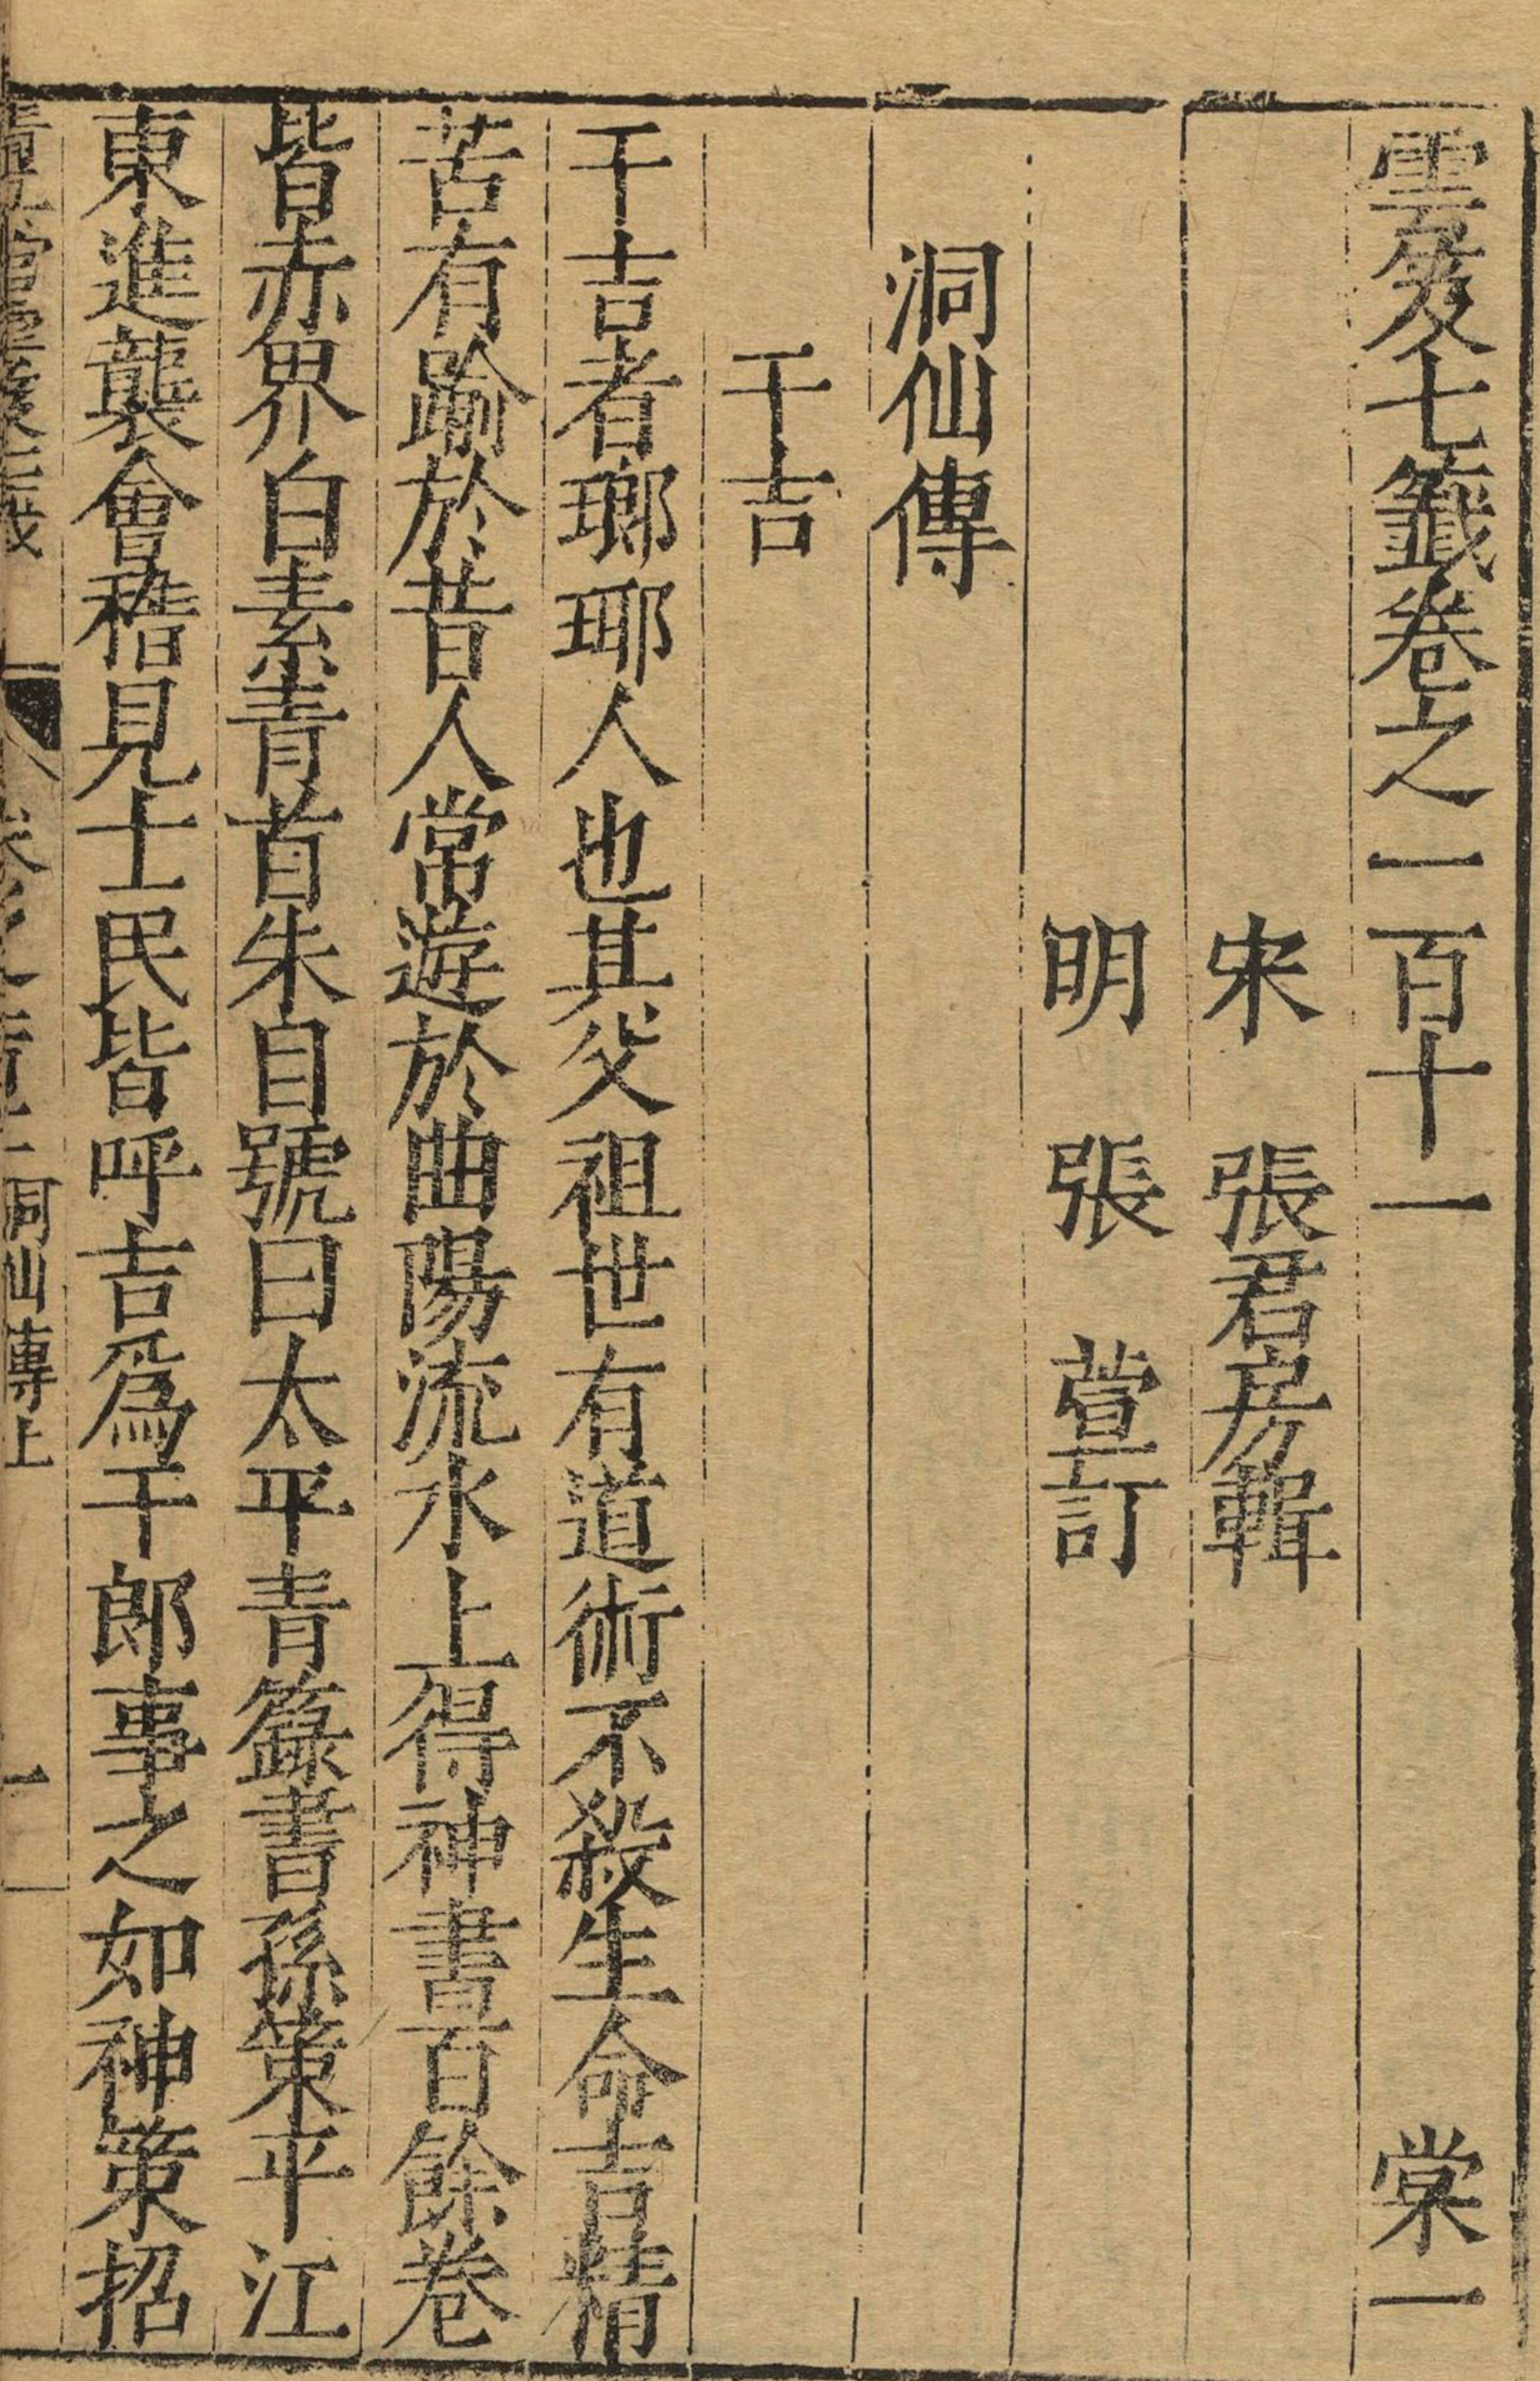 雲笈七籤卷之一百十一 棠一
宋 張君房輯
明 張 萱訂
洞仙傳
干吉
干吉者瑯琊人也其父祖世有道術不殺生命吉精
苦有踰於昔人常遊於曲陽流水上得神書百餘卷
皆赤界白素青首朱自號曰太平青籙書孫策平江
東進襲會稽見士民皆呼吉爲干郎事之如神策招
洞仙傳上 一